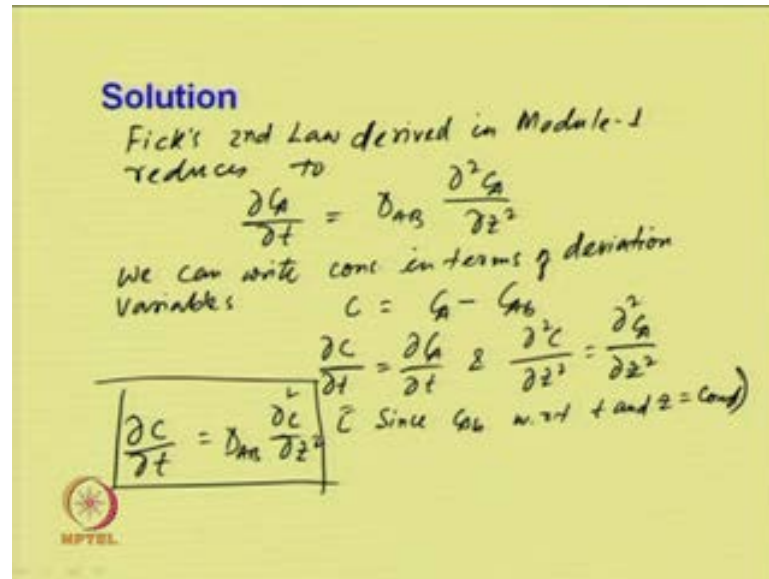 Solution
Fick's 2nd Law derived in Module-1
reduces to
∂C_A/∂t = D_AB ∂²C_A/∂z²
We can write conc in terms of deviation
Variables C = C_A - C_Ab
∂C/∂t = ∂C_A/∂t & ∂²C/∂z² = ∂²C_A/∂z²
∂C/∂t = D_AB ∂²C/∂z² (Since C_Ab w.r.t t and z = Const)
NPTEL